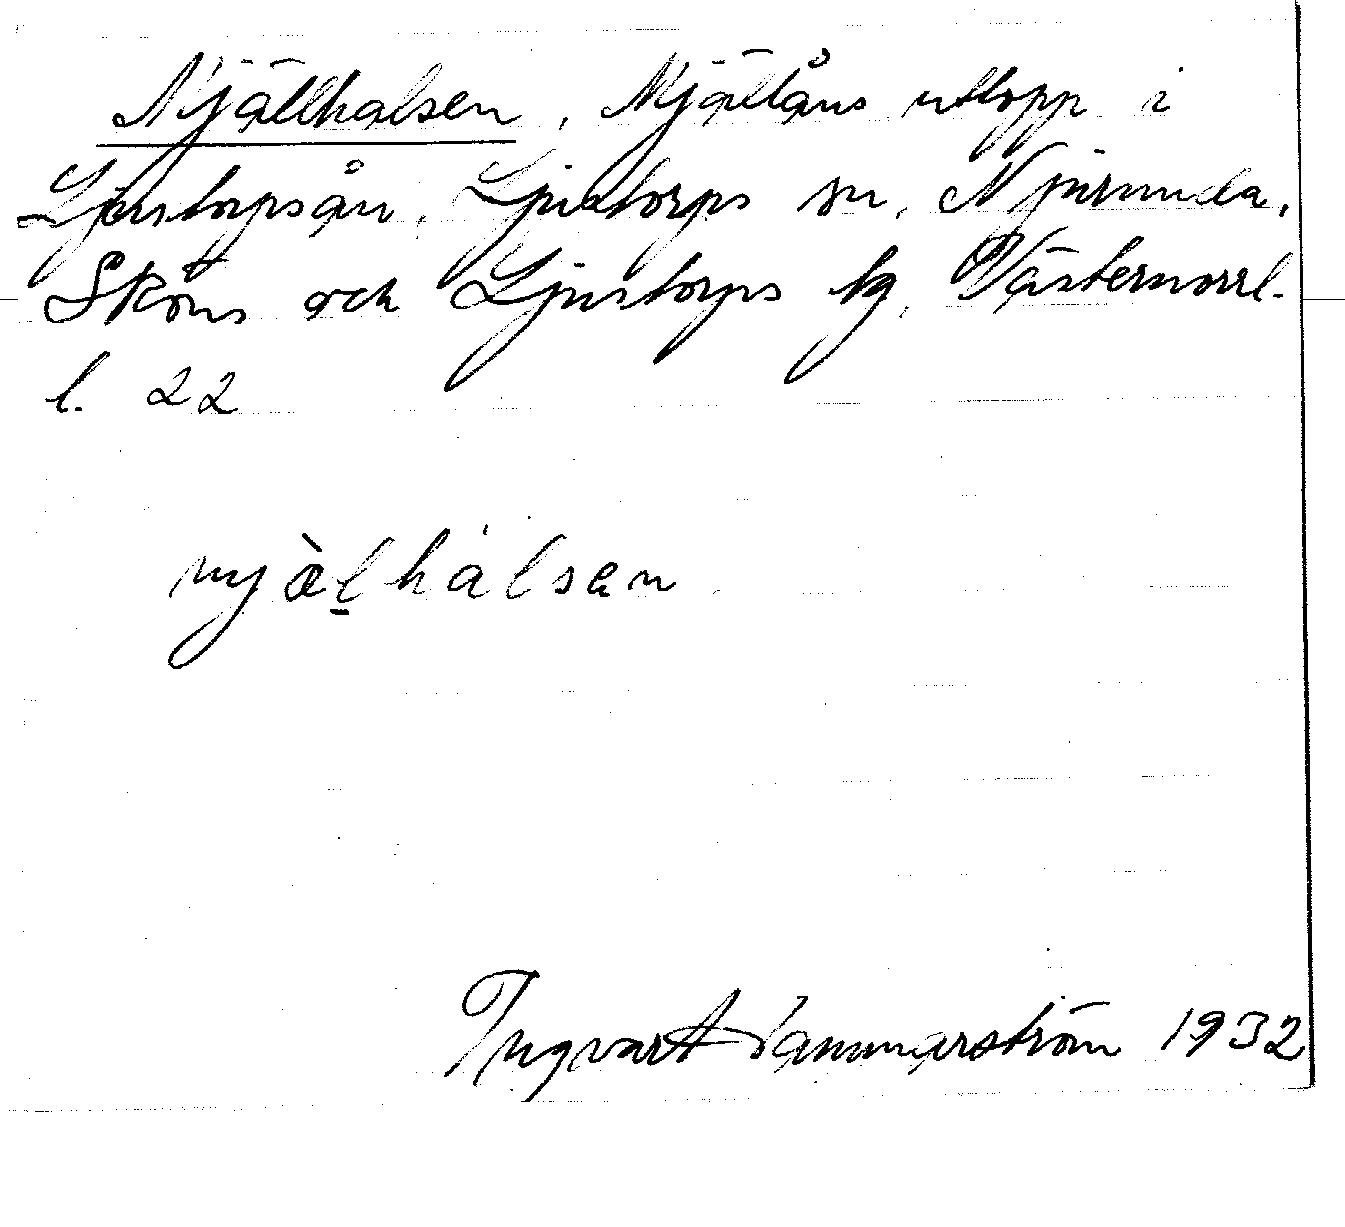 Njällhalsen, Njällåns utlopp i
Ljustorpsån, Ljustorps sn, Njurunda,
Sköns och Ljustorps tg, Västernorrl.
l. 22
njæ̀l̠hálsen
Ingvart Hammarström 1932